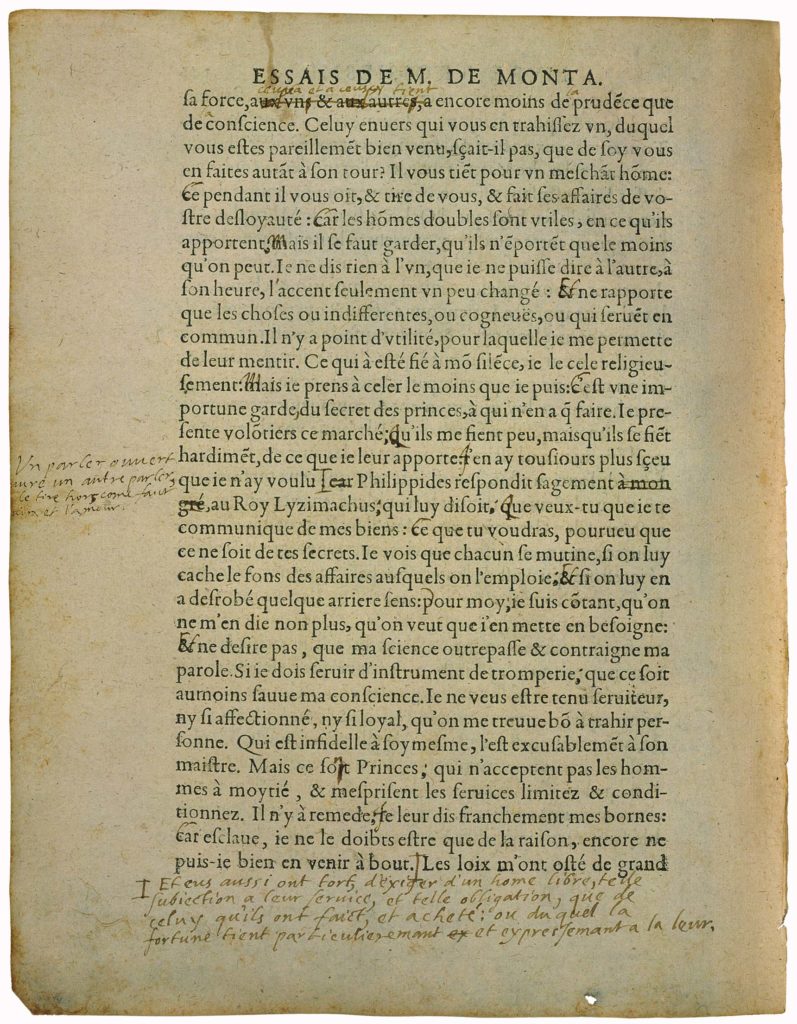 ESSAIS DE M. DE MONTA.
ceusa et a ceusy tient
la
sa force, aux vns & aux autres, a encore moins de prudẽce que
de cõnscience. Celuy enuers qui vous en trahissez vn, duquel
vous estes pareillemẽt bien venu, sçait-il pas, que de soy vous
en faites autãt à son tour? Il vous tiẽt pour vn meschãt hõme:
Ce pendant il vous oit, & tire de vous, & fait ses affaires de vo-
stre desloyauté: Car les hõmes doubles sont vtiles, en ce qu'ils
apportent: Mais il se faut garder, qu'ils n'ẽportẽt que le moins
qu'on peut. Ie ne dis rien à l'vn, que ie ne puisse dire à l'autre, à
son heure, l'accent seulement vn peu changé: Et ne rapporte
que les choses ou indifferentes, ou cogneuës, ou qui seruẽt en
commun. Il n'y a point d'vtilité, pour laquelle ie me permette
de leur mentir. Ce qui à esté fié à mõ silẽce, ie le cele religieu-
sement: Mais ie prens à celer le moins que ie puis: C'est vne im-
portune garde, du secret des princes, à qui n'en a q̃ faire. Ie pre-
sente volõtiers ce marché, Qu'ils me fient peu, mais qu'ils se fiẽt
hardimẽt, de ce que ie leur apporte: I'en ay tousiours plus sçeu
que ie n'ay voulu car Philippides respondit sagement à mon
gré, au Roy Lyzimachus, qui luy disoit, Que veux-tu que ie te
communique de mes biens: Ce que tu voudras, pourueu que
ce ne soit de tes secrets. Ie vois que chacun se mutine, si on luy
cache le fons des affaires ausquels on l'emploie, & si on luy en
a desrobé quelque arriere sens: pour moy, ie suis cõtant, qu'on
ne m'en die non plus, qu'on veut que i'en mette en besoigne:
Et ne desire pas, que ma science outrepasse & contraigne ma
parole. Si ie dois seruir d'instrument de tromperie, que ce soit
aumoins sauue ma conscience. Ie ne veus estre tenu seruiteur,
ny si affectionné, ny si loyal, qu'on me treuue bõ à trahir per-
sonne. Qui est infidelle à soy mesme, l'est excusablemẽt à son
maistre. Mais ce sont Princes, qui n'acceptent pas les hom-
mes à moytié, & mesprisent les seruices limitez & condi-
tionnez. Il n'y à remede, Ie leur dis franchement mes bornes:
Car esclaue, ie ne le doibts estre que de la raison, encore ne
puis-ie bien en venir à bout. Les loix m'ont osté de grand
Vn parler ouvert
uvre un autre parler
le tire hors come faict
vin et l'amour.
Et eus aussi ont tort, d'exiger d'un home libre, telle
subiection a leur service, et telle obligation, que de
celuy qu'ils ont faict, et acheté: ou duquel la
fortune tient particulieremant ex et expressemant a la leur.